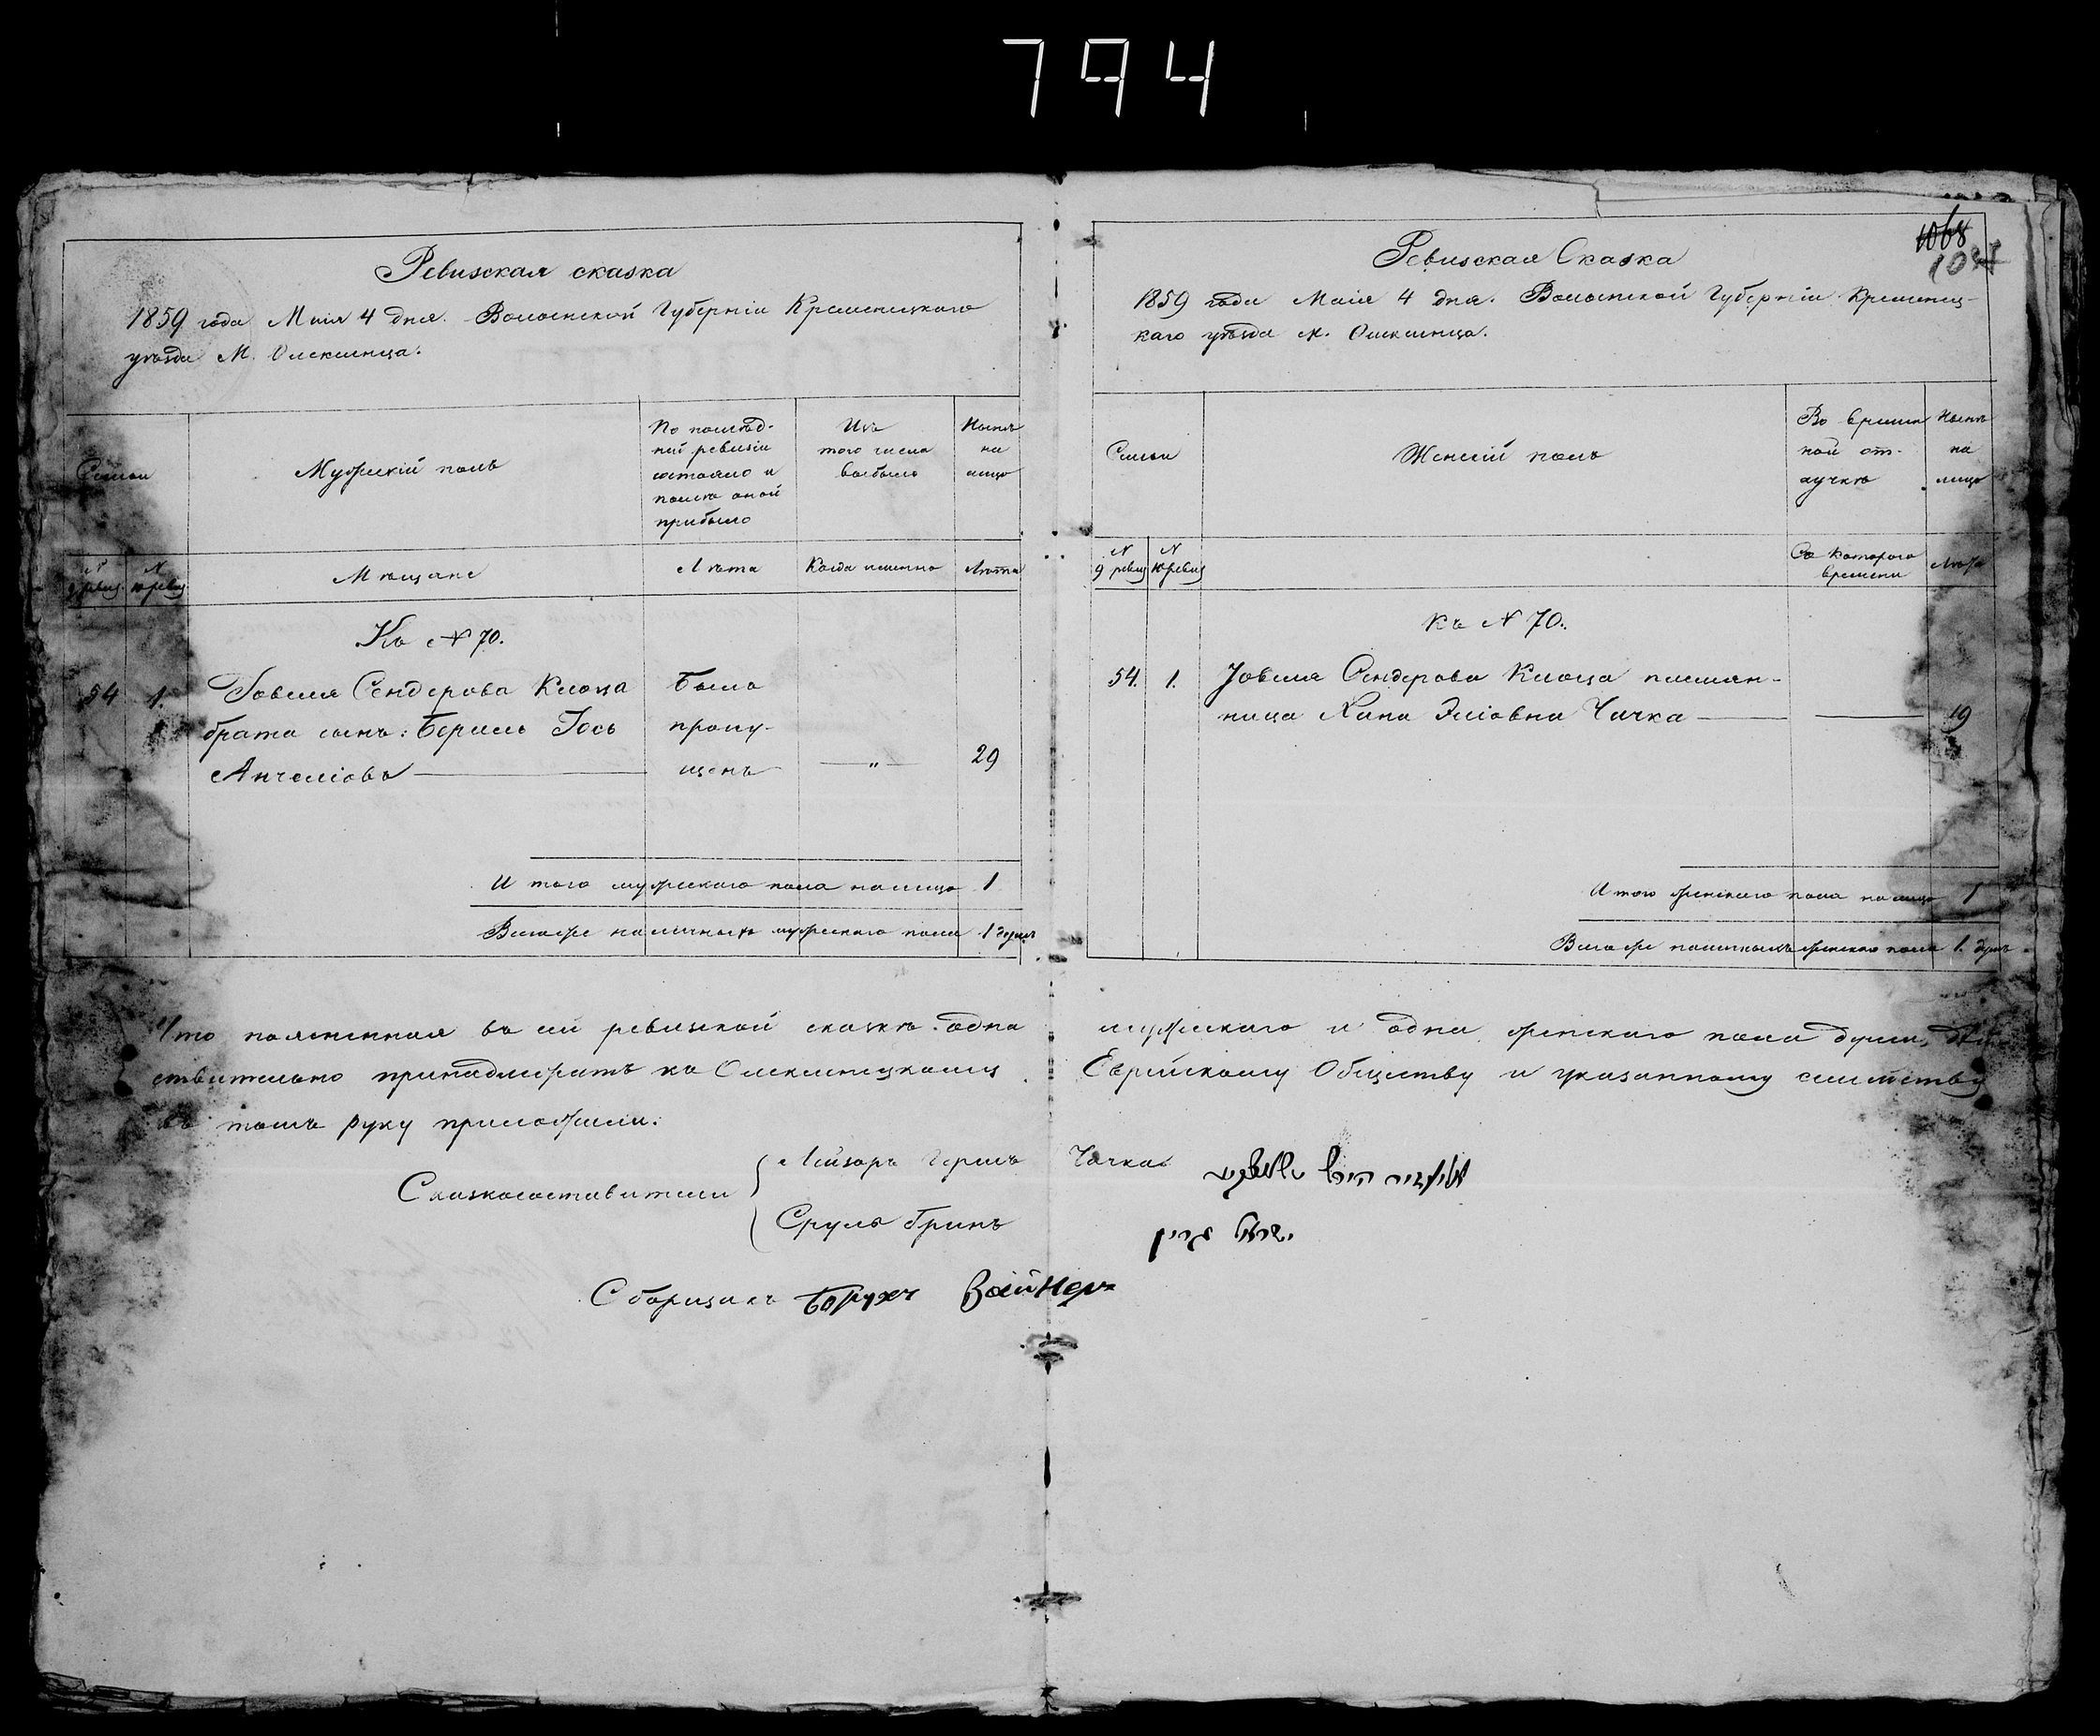 794
Ревизская сказка
1859 года Маія 4 дня. Волынской Губерніи Кременецкаго
уѣзда М. Олексинца.
Семьи
Мужескій полъ
По послѣд-
ней ревизіи
состояло и
послѣ оной
прибыло
Изъ
того числа
выбыло
Нынѣ
на
лицо
№
9 ревиз.
№
10 ревиз
Мѣщане
Лѣта
Когда именно
Лѣта
Къ № 70.
54 1. Іовеля Сендерова Клоца
брата сынъ: Берель Іось
Анчеліовъ
Былъ
пропу-
щенъ
— „ —
29
Итого мужескаго пола налицо 1
Всего же наличныхъ мужескаго пола 1 душъ
Ревизская Сказка
1068
1859 года Маія 4 дня. Волынской Губерніи Кременец-
каго уѣзда м. Олексинца.
Семьи
Женскій полъ
Во времен
ной от-
лучкѣ
Нынѣ
на
лицо
№
9 ревиз
№
10 ревиз
Съ котораго
времени
Лѣта
Къ № 70.
54. 1. Іовеля Сендерова Клоца племян-
ница Хана Эліовна Чачка — — 19
Итого женскаго пола налицо 1
Всего же наличныхъ женскаго пола 1. душъ
Что поясненная въ сей ревизской сказкѣ одна мужескаго и одна женскаго пола души, дѣй-
ствительно принадлежатъ къ Олексинецкому Еврейскому Обществу и указанному семейству
въ томъ руку приложили:
Сказкосоставители
Лейзоръ Гершъ Чачкес
Сруль Гринъ ישראל גרין
Сборщикъ Борухъ Вайнеръ